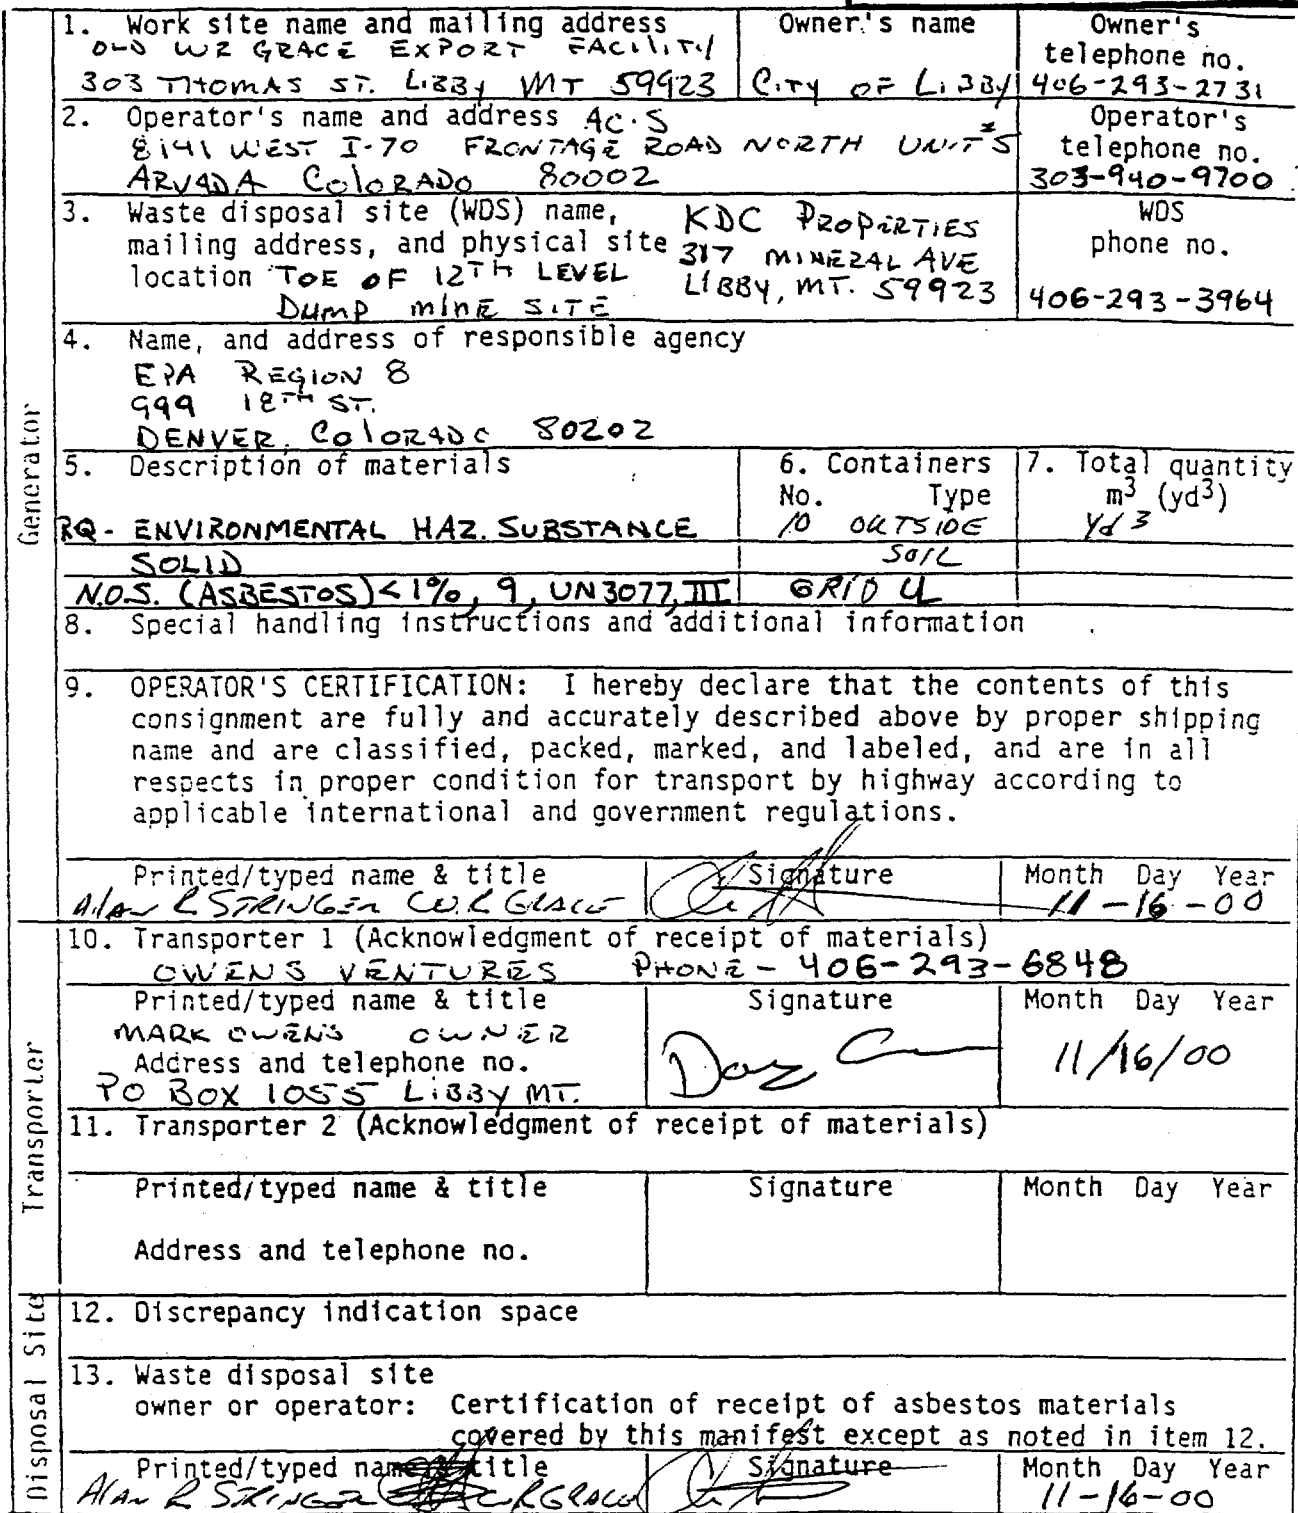 Generator
1. Work site name and mailing address
OLD WR GRACE EXPORT FACILITY
303 THOMAS ST. LIBBY MT 59923
Owner's name
CITY OF LIBBY
Owner's
telephone no.
406-293-2731
2. Operator's name and address AC·S
8141 WEST I-70 FRONTAGE ROAD NORTH UNIT #5
ARVADA COLORADO 80002
Operator's
telephone no.
303-940-9700
3. Waste disposal site (WDS) name, KDC PROPERTIES
mailing address, and physical site 317 MINERAL AVE
location TOE OF 12TH LEVEL LIBBY, MT. 59923
DUMP MINE SITE
WDS
phone no.
406-293-3964
4. Name, and address of responsible agency
EPA REGION 8
999 18TH ST.
DENVER, COLORADO 80202
5. Description of materials
RQ - ENVIRONMENTAL HAZ. SUBSTANCE
SOLID
N.O.S. (ASBESTOS) <1%, 9, UN3077, III
6. Containers
No. Type
10 OUTSIDE
SOIL
GRID 4
7. Total quantity
m3 (yd3)
Yd 3
8. Special handling instructions and additional information
9. OPERATOR'S CERTIFICATION: I hereby declare that the contents of this
consignment are fully and accurately described above by proper shipping
name and are classified, packed, marked, and labeled, and are in all
respects in proper condition for transport by highway according to
applicable international and government regulations.
Printed/typed name & title
Alan R STRINGER W.R GRACE
Signature
Month Day Year
11-16-00
Transporter
10. Transporter 1 (Acknowledgment of receipt of materials)
OWENS VENTURES PHONE - 406-293-6848
Printed/typed name & title
MARK OWENS OWNER
Address and telephone no.
PO BOX 1055 LIBBY MT.
Signature
Month Day Year
11/16/00
11. Transporter 2 (Acknowledgment of receipt of materials)
Printed/typed name & title
Signature
Month Day Year
Address and telephone no.
Disposal Site
12. Discrepancy indication space
13. Waste disposal site
owner or operator: Certification of receipt of asbestos materials
covered by this manifest except as noted in item 12.
Printed/typed name & title
Alan R STRINGER W R GRACE
Signature
Month Day Year
11-16-00